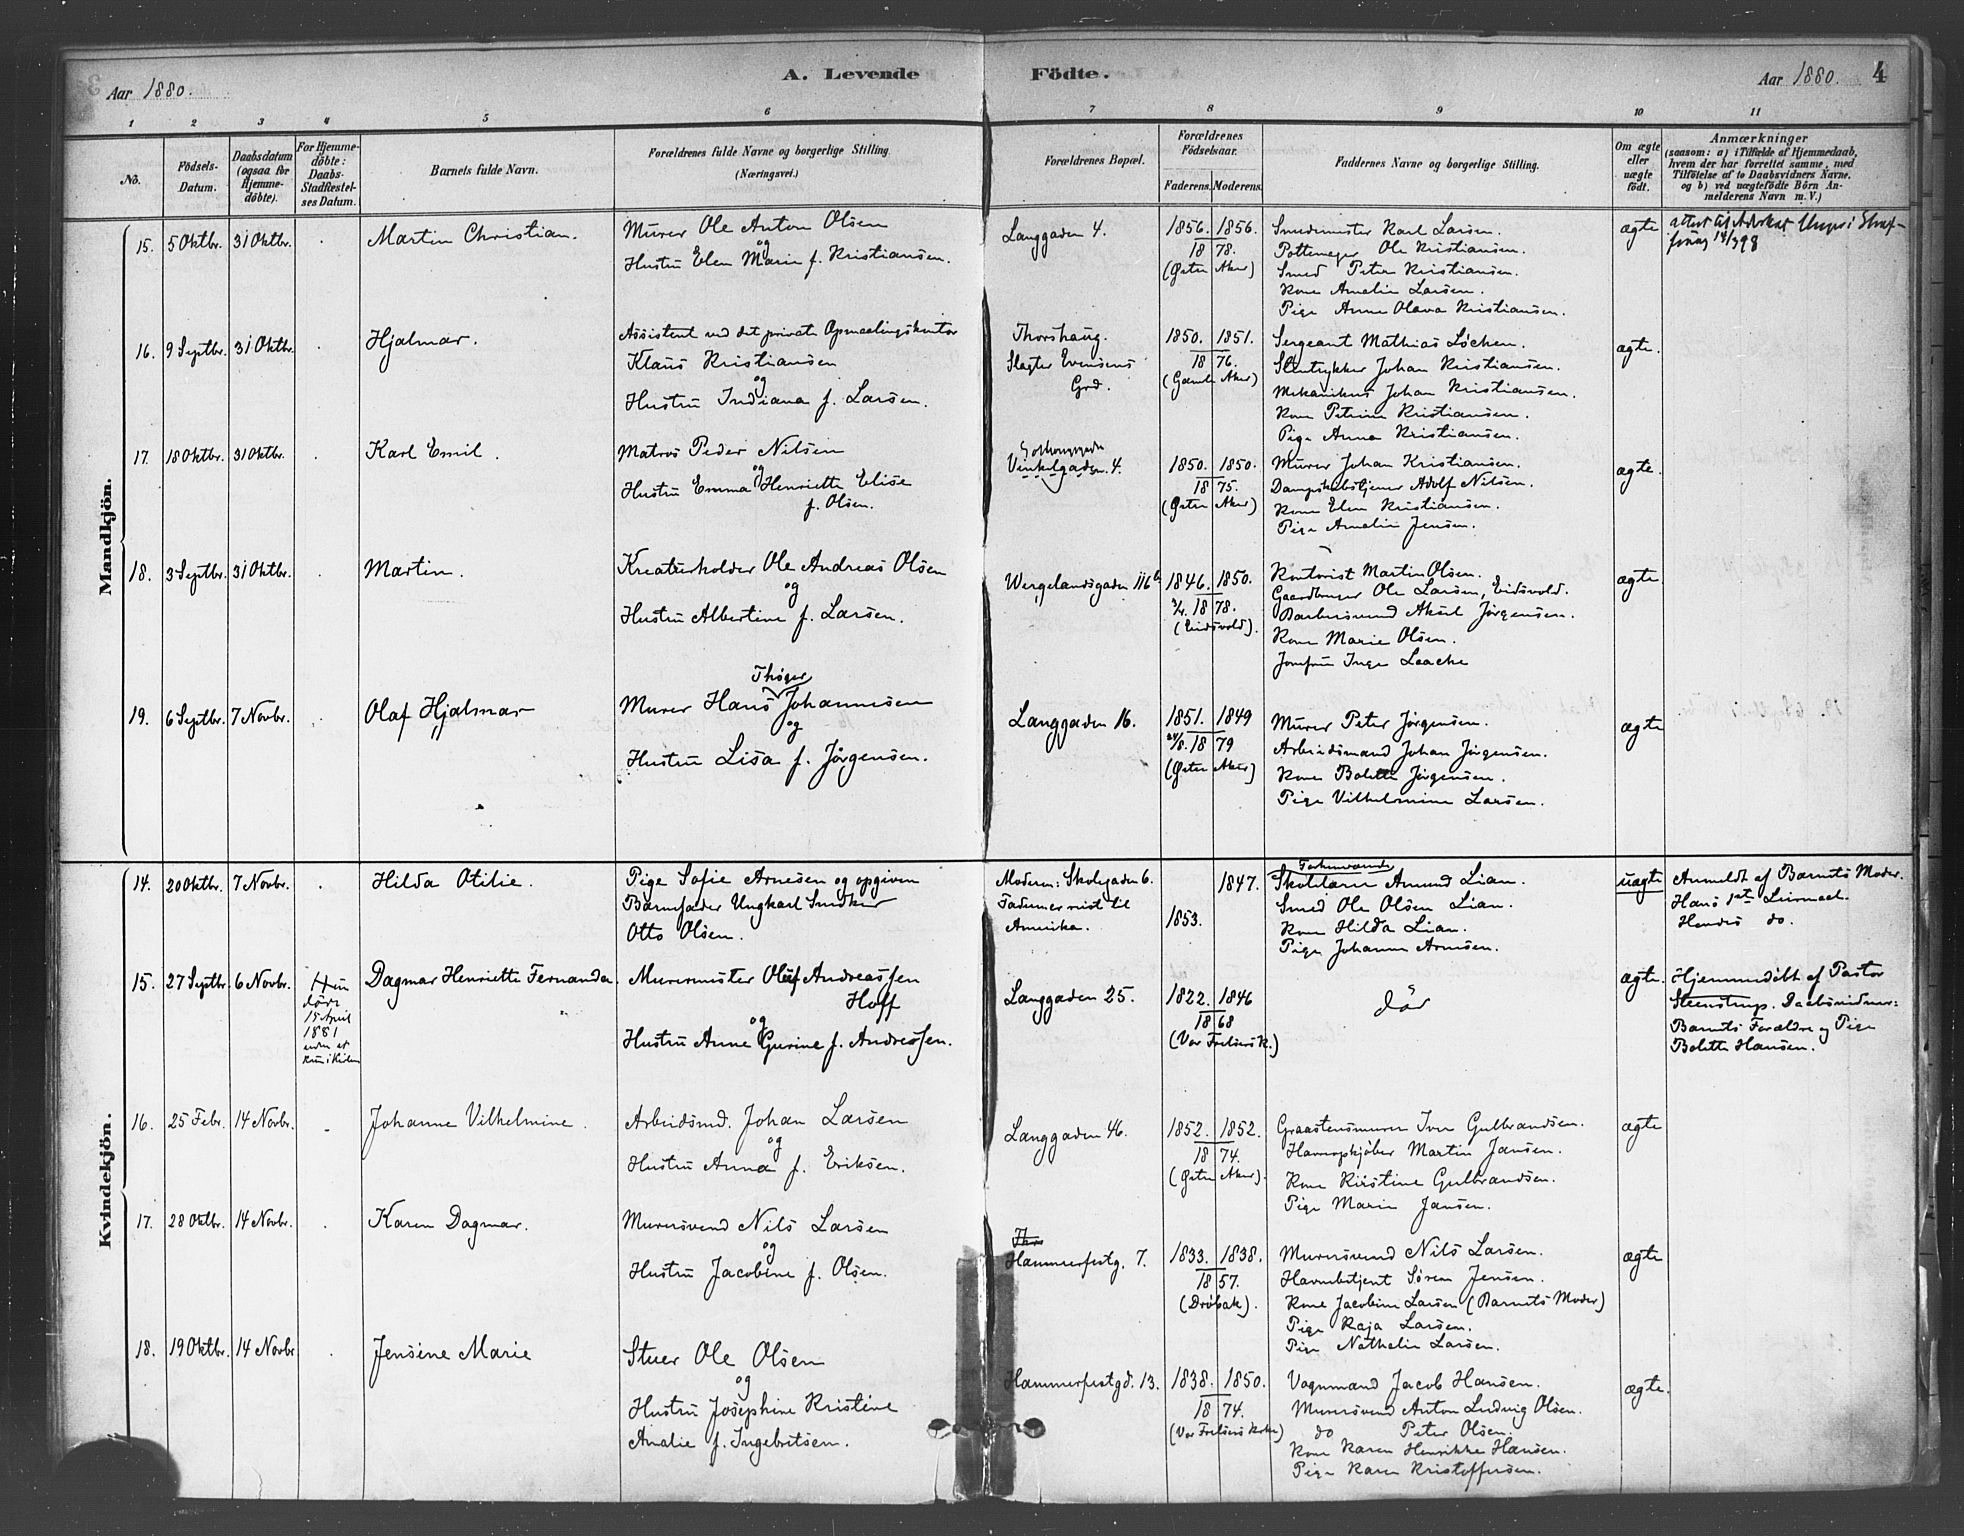 Aar 1880.
A. Levende Födte.
Aar 1880. 4
1 2 3 4 5 6 7 8 9 10 11
No.
Födsels-Datum.
Daabsdatum (ogsaa for Hjemme-döbte).
For Hjemme-döbte: Daabs-Stadfæstel-ses Datum.
Barnets fulde Navn.
Forældrenes fulde Navne og borgerlige Stilling. (Næringsvei.)
Forældrenes Bopæl.
Forældrenes Födselsaar.
Faderens. Moderens.
Faddernes Navne og borgerlige Stilling.
Om ægte eller uægte födt.
Anmærkninger
(saasom: a) i Tilfælde af Hjemmedaab,
hvem der har forrettet samme, med
Tilföielse af to Daabsvidners Navne,
og b) ved uægtefödte Börn An-
melderens Navn m. V.)
Mandkjön.
15. 5 Oktbr. 31 Oktbr. Martin Christian.
Murer Ole Anton Olsen
og
Hustru Elen Marie f. Kristiansen.
Langgaden 4.
1856. 1856.
1878.
(Østre Aker)
Smedmester Karl Larsen.
Pottemager Ole Kristiansen.
Smed Peter Kristiansen.
Kone Amalie Larsen.
Pige Anne Olava Kristiansen.
ægte
16. 9 Septbr. 31 Oktbr. Hjalmar.
Assistent ved det private Opmaalingskontor
Klaus Kristiansen
og
Hustru Indiana f. Larsen.
Thorshaug.
Slagter Evensens
Grd.
1850. 1851.
1876.
(Gamle Aker)
Sergeant Mathias Løchen.
Stentrykker Johan Kristiansen.
Mekanikus Johan Kristiansen.
Kone Petrine Kristiansen.
Pige Anna Kristiansen.
ægte.
17. 18 Oktbr. 31 Oktbr. Karl Emil.
Matros Peder Nilsen
og
Hustru Emma Henriette Elise
f. Olsen.
Vinkelgaden. 4.
1850. 1850.
1875.
(Østre Aker)
Murer Johan Kristiansen.
Dampskibstjener Adolf Nilsen.
Kone Elen Kristiansen.
Pige Amalie Jensen.
ægte.
18. 3 Septbr. 31 Oktbr. Martin.
Kreaturholder Ole Andreas Olsen
og
Hustru Albertine f. Larsen.
Wergelandsgaden 116 b
1846. 1850.
1878.
(Eidsvold).
Kontorist Martin Olsen.
Gaardbruger Ole Larsen, Eidsvold.
Barbersvend Aksel Jørgensen.
Kone Marie Olsen.
Jomfru Inga Laache
ægte
19. 6 Septbr. 7 Novbr. Olaf Hjalmar
Thøger
Murer Hans Johannesen
og
Hustru Lisa f. Jørgensen.
Langgaden 16.
1851. 1849
24/8. 1879
(Østre Aker)
Murer Peter Jørgensen.
Arbeidsmand Johan Jørgensen.
Kone Bolette Jørgensen.
Pige Vilhelmine Larsen.
ægte
Kvindekjön.
14. 20 Oktbr. 7 Novbr. Hilda Otilie.
Pige Sofie Arnesen og opgiven
Barnefader Ungkarl Snedker
Otto Olsen.
Moderen: Skolegaden 6.
Faderen reist til
Amerika.
1847.
1853.
Forhenværende
Skolelærer Amund Lian.
Smed Ole Olsen Lian.
Kone Hilda Lian.
Pige Johanne Arnesen.
uægte
Anmeldt af Barnets Moder.
Hans 1ste Leiermaal.
Hendes do.
15. 27 Septbr. 6 Novbr.
Hun
døde
15 April
1881
uden at
Dagmar Henriette Fernanda.
Murermester Oluf Andreassen
Hoff
og
Hustru Anne Gurine f. Andreassen.
Langgaden 25.
1822. 1846
1868
(Vor Frelsers K.)
død
ægte.
Hjemmedøbt af Pastor
Steenstrup. Daabsvidner:
Barnets Forældre og Pige
Bolette Hansen.
16. 25 Febr. 14 Novbr. Johanne Vilhelmine.
Arbeidsmd. Johan Larsen
og
Hustru Anna f. Eriksen.
Langgaden 46.
1852. 1852.
1874.
(Østre Aker).
Graastensmurer Iver Gulbrandsen.
Havreopkjøber Martin Jansen.
Kone Kirstine Gulbrandsen.
Pige Marie Jansen.
ægte
17. 28 Oktbr. 14 Novbr. Karen Dagmar.
Murersvend Nils Larsen
og
Hustru Jacobine f. Olsen.
Hammerfestg. 7.
1833. 1838.
1857.
(Drøbak).
Murersvend Nils Larsen.
Havnebetjent Søren Jensen.
Kone Jacobine Larsen (Barnets Moder)
Pige Kaja Larsen.
Pige Nathalie Larsen.
ægte
18. 19 Oktbr. 14 Novbr Jensine Marie
Stuer Ole Olsen
og
Hustru Josephine Kristine
Amalie f. Ingebritsen.
Hammerfestgd. 13.
1838. 1850.
1874.
(Vor Frelsers Kirke)
Vognmand Jacob Hansen.
Murersvend Anton Ludvig Olsen.
do Peter Olsen.
Kone Karen Henrikke Hansen.
Pige Karen Kristoffersen.
ægte.